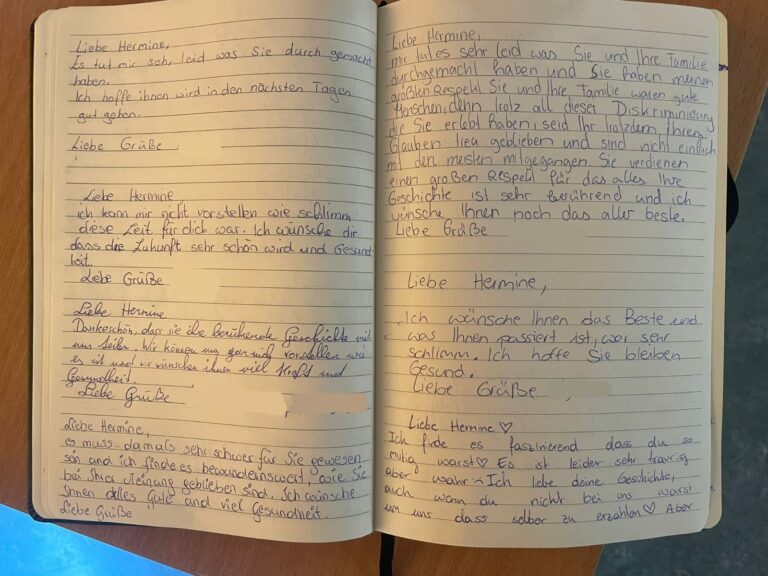 Liebe Hermine,
Es tut mir sehr leid was Sie durch gemacht
haben.
Ich hoffe ihnen wird in den nächsten Tagen
gut gehen.
Liebe Grüße
Liebe Hermine
ich kann mir nicht vorstellen wie schlimm
diese Zeit für dich war. Ich wünsche dir
dass die Zukunft sehr schön wird und Gesund-
heit.
Liebe Grüße
Liebe Hermine
Dankeschön, dass sie ihre berührende Geschichte mit
uns teilen. Wir können uns gar nich vorstellen wie
es ist und wir wünschen ihnen viel Kraft und
Gesundheit.
Liebe Grüße
Liebe Hermine,
es muss damals sehr schwer für Sie gewesen
sein and ich finde es bewundernswert, wie Sie
bei Ihrer Meinung geblieben sind. Ich wünsche
Ihnen alles Gute and viel Gesundheit.
Liebe Grüße
Liebe Hermine,
mir tut es sehr leid was Sie und Ihre Familie
durchgemacht haben und Sie haben meinen
größten Respekt Sie und Ihre Familie waren gute
Menschen, denn trotz all dieser Diskriminierung
die Sie erlebt haben, seid Ihr trotzdem Ihrem
Glauben treu geblieben und sind nicht einfach
mit den meisten mitgegangen. Sie verdienen
einen großen Respekt für das alles Ihre
Geschichte ist sehr berührend und ich
wünsche Ihnen noch das aller beste.
Liebe Grüße
Liebe Hermine,
Ich wünsche Ihnen das Beste und
was Ihnen passiert ist, war sehr
schlimm. Ich hoffe Sie bleiben
Gesund.
Liebe Grüße
Liebe Hermine ♡
Ich finde es faszinierend dass du so
mutig warst ♡ Es ist leider sehr traurig
aber wahr :( Ich liebe deine Geschichte,
auch wann du nicht bei uns warst
um uns dass selber zu erzählen ♡ Aber